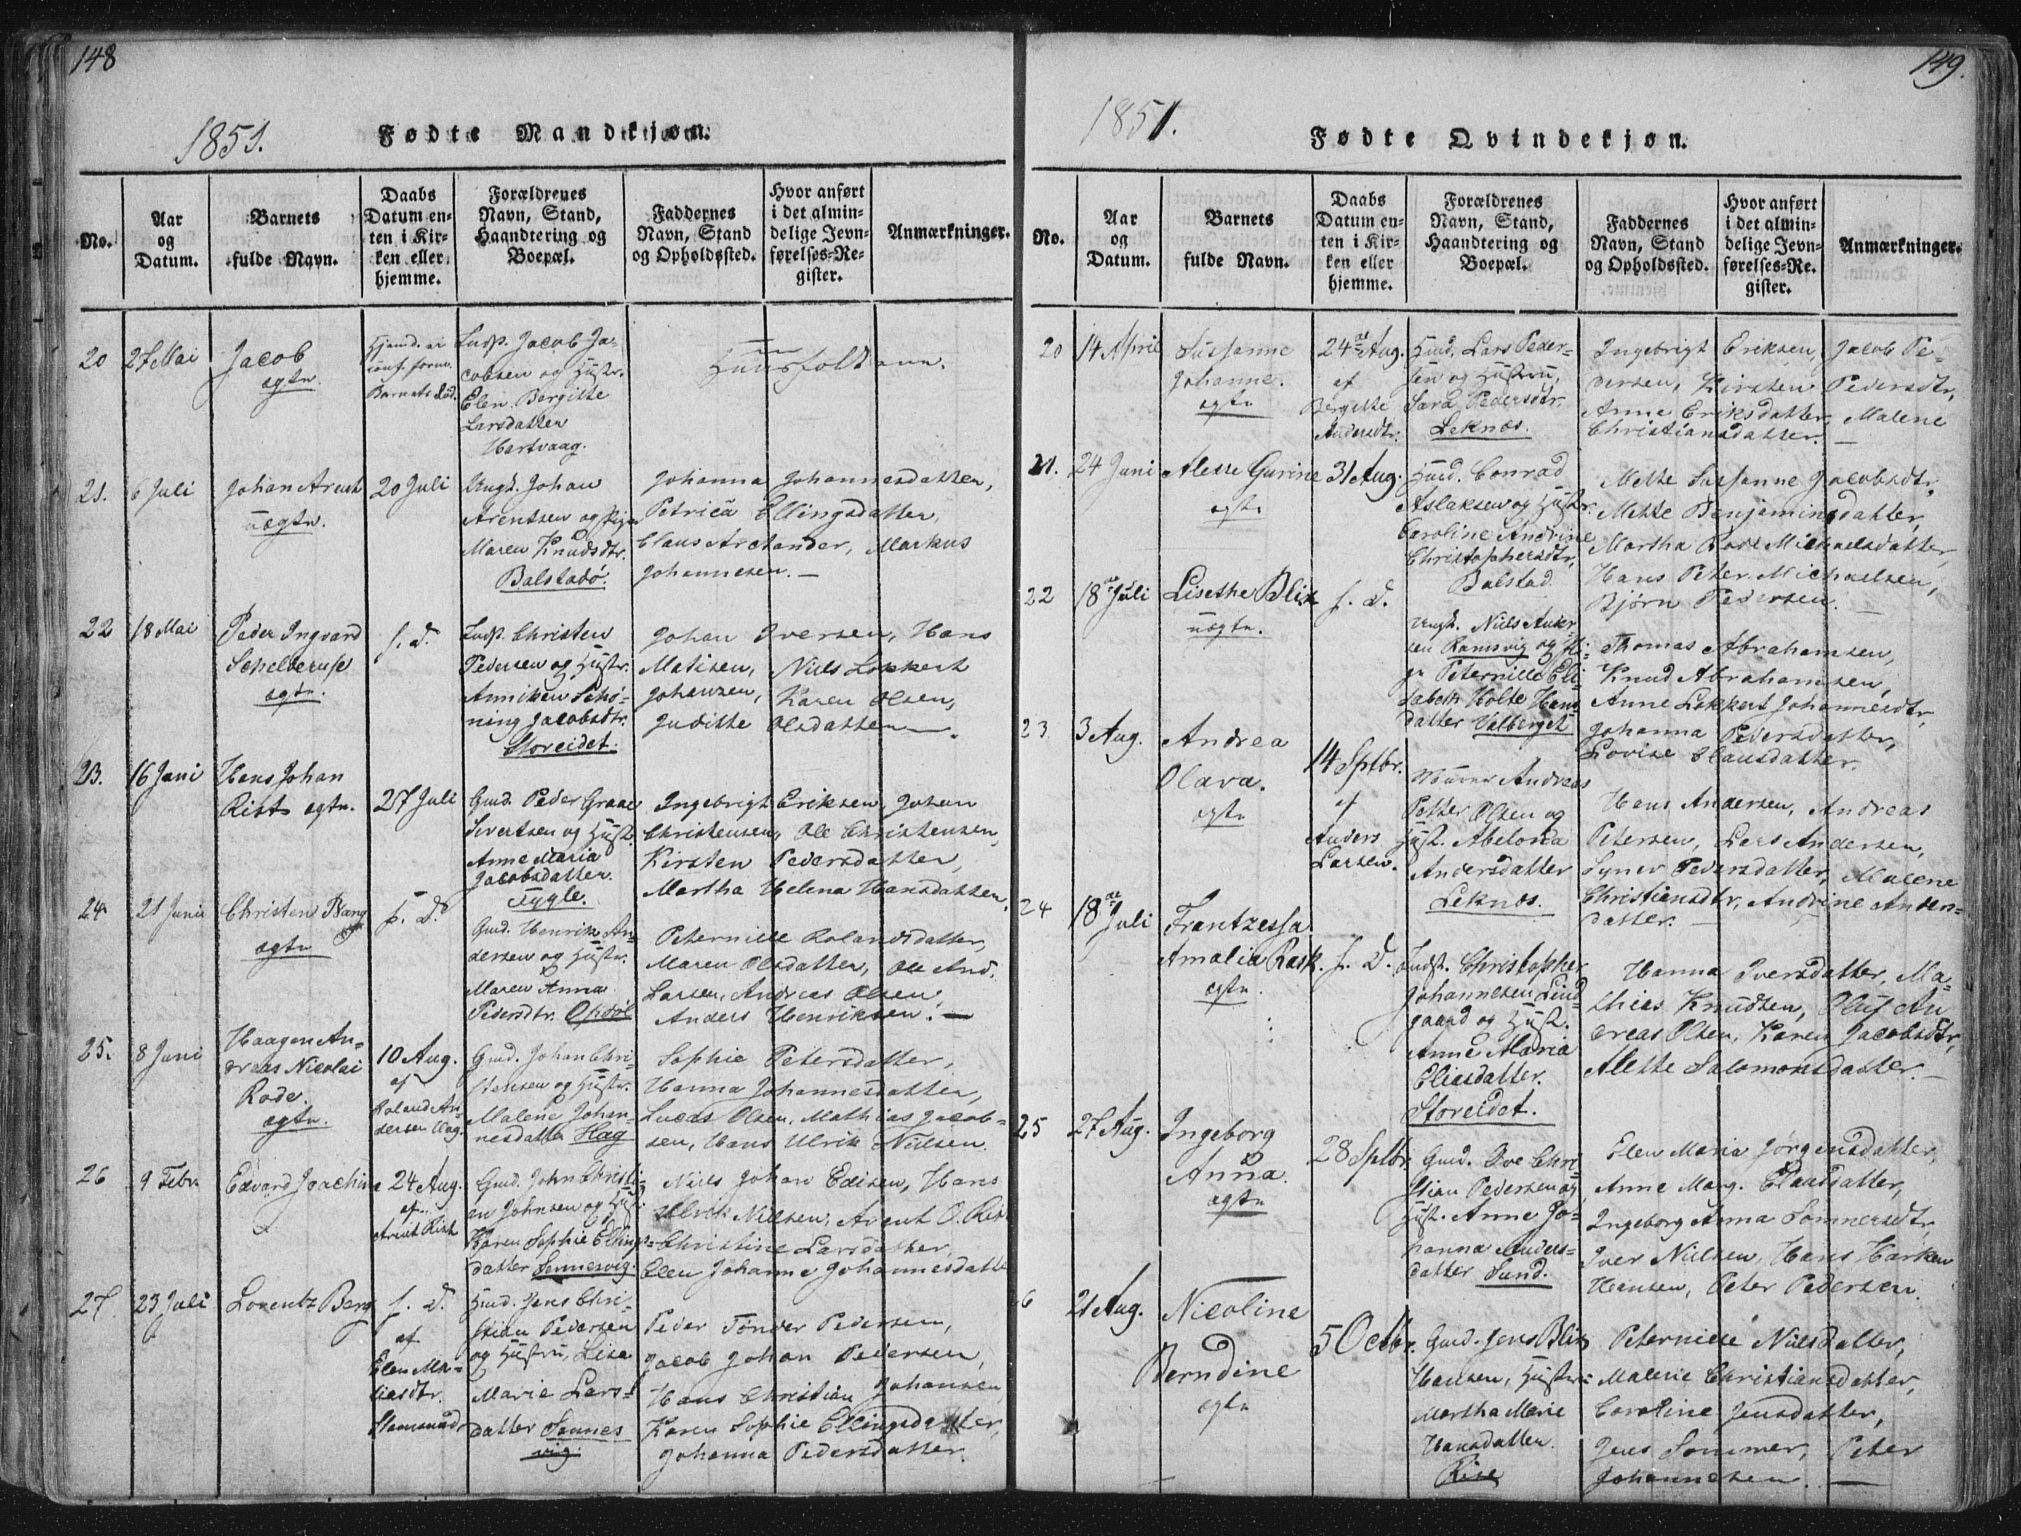 148
1851.
Fødte Mandkjøn.
No.
Aar
og
Datum.
Barnets
fulde Navn.
Daabs
Datum en-
ten i Kir-
ken eller
hjemme.
Forældrenes
Navn, Stand,
Haandtering og
Boepæl.
Faddernes
Navn, Stand
og Opholdssted.
Hvor anført
i det almin-
delige Jevn-
førelses-Re-
gister.
Anmærkninger.
20
27 Mai
Jacob
ægte.
Hjemd. ei
conf. forme.
Barnets død.
Indst. Jacob Ja-
cobsen og Hustr.
Elen Bergitte
Larsdatter
Hartvaag.
Huusfolkene.
21.
6 Juli
Johan Arent
uægte.
20 Juli
Ungk. Johan
Arentsen og Pige
Maren Knudsdtr.
Balstadø.
Johanna Johannesdatter,
Petrica Ellingsdatter,
Claus Archander, Markus
Johannesen. —
22
18 Mai
Peder Ingvard
Schelderup
ægte.
s. D.
Indst. Christen
Pedersen og Hustr.
Anniken Schø-
ning Jacobsdtr.
Storeidet.
Johan Iversen, Hans
Matisen, Niels Lokkert
Johansen, Karen Olsen,
Juditte Olsdatter —.
23.
16 Juni
Hans Johan
Rist ægte.
27 Juli
Gmd. Peder Graae
Sivertsen og Hust.
Anne Maria
Jacobsdatter.
Tygle.
Ingebrigt Eriksen, Johan
Christensen, Ole Christensen,
Kirsten Pedersdatter,
Martha Helena Hansdatter.
24
21 Juni
Christen Bang
ægte
s. D.
Gmd. Henrik An-
dersen og Hustr.
Maren Anna
Pedersdtr. Opdøl
Peternille Rolandsdatter,
Maren Olsdatter, Ole And.
Larsen, Andreas Olsen,
Anders Henriksen. —
25.
8 Juni
Haagen An-
dreas Nicolai
Rode.
ægte.
10 Aug.
af
Roland An-
dersen Hag.
Gmd. Johan Chri-
stensen og Hustr.
Malene Johan-
nesdatter Hag
Sophie Petersdatter,
Hanna Johannesdatter,
Lucas Olsen, Mathias Jacob-
sen, Hans Ulrik Nilsen.
26
9 Febr.
Edvard Joachim
24 Aug.
af
Arent Rist
Gmd. John Christi-
an Johnsen og Hust.
Karen Sophie Ellings-
datter Sennesvig.
Niels Johan Edisen, Hans
Ulrik Nilsen, Arent O. Rist
Christine Larsdatter,
Elen Johanne Johannesdatter
27.
23 Juli
Lorentz Berg
s. D.
af
Elen Ma-
thiasdtr.
Stamsund.
Huusd. Jens Chri-
stian Pedersen
og Hustru, Lisa
Marie Lars-
datter Sennes
vig.
Peder Tønder Pedersen,
Jacob Johan Pedersen,
Hans Christian Johansen,
Karen Sophie Ellingsdatter,
Johanna Pedersdatter.
149.
1851.
Fødte Qvindekjøn.
No.
Aar
og
Datum.
Barnets
fulde Navn.
Daabs
Datum en-
ten i Kir-
ken eller
hjemme.
Forældrenes
Navn, Stand,
Haandtering og
Boepæl.
Faddernes
Navn, Stand
og Opholdssted.
Hvor anført
i det almin-
delige Jevn-
førelses-Re-
gister.
Anmærkninger.
20
14 April
Susanne
Johanne.
ægte
24de Aug.
af
Bergitte
Andersdtr.
Huusd. Lars Peder-
sen og Hustru,
Sara Pedersdtr.
Leknæs.
Ingebrigt Eriksen, Jacob Pe-
dersen, Kirsten Pedersdtr,
Anne Eriksdatter, Malene
Christiansdatter. —
21.
24 Juni
Alesse Gurine
ægte
31 Aug.
Huusd. Conrad
Aslaksen og Hustr.
Caroline Andrine
Christophersdtr,
Balstad
Mette Susanne Jacobsdtr,
Mette Benjaminsdatter,
Martha Bore Michaelsdatter,
Hans Peter Michaelsen,
Bjørn Pedersen. —
22
18de Juli
Lisethe Blix
uægte.
s. D.
Ungk. Niels Anker-
sen Ramsvig og Pi-
ge Peternille Eli-
sabeth Holte Hans
datter Valberget
Thomas Abrahamsen,
Knud Abrahamsen,
Anne Lekkert Johannesdtr,
Johanna Pedersdatter,
Lovise Clausdatter.
23.
3 Aug.
Andrea
Olava.
ægte
14 Sptbr.
af
Anders
Larsen.
Andreas
Petter Olsen og
Hust. Abelona
Andersdatter
Leknæs.
Hans Andersen, Andreas
Petersen, Lars Andersen,
Synev Pedersdatter, Malene
Christiansdtr, Andrine Anders-
datter. —
24
18de Juli
Frantzessa
Amalia Rask.
ægte.
s. D.
Indst. Christopher
Johannesen Lind-
gaard og Hust.
Anne Maria
Eliasdatter.
Storeidet.
Hanna Iversdatter, Ma-
thias Knudsen, Oluf An-
dreas Olsen, Karen Jacobsdtr,
Alette Salomonsdatter. —
25
27 Aug.
Ingeborg
Anna.
ægte
28 Sptbr.
Gmd. Ove Chri-
stian Pedersen og
Hust. Anne Jo-
hanna Anders-
datter Sund.
Elen Maria Jørgensdatter,
Anne Marg. Clausdatter,
Ingeborg Anna Sommersdtr,
Iver Nielsen, Hans Harken
Hansen, Peter Pedersen.
6
21 Aug.
Nicoline
Berndine
ægte
5 Octbr.
Gmd. Jens Blix
Hansen, Hustr:
Martha Marie
Hansdatter.
Rise
Peternille Nielsdatter,
Malene Christiansdatter,
Caroline Jensdatter,
Jens Sommer, Peter
Johannesen. —